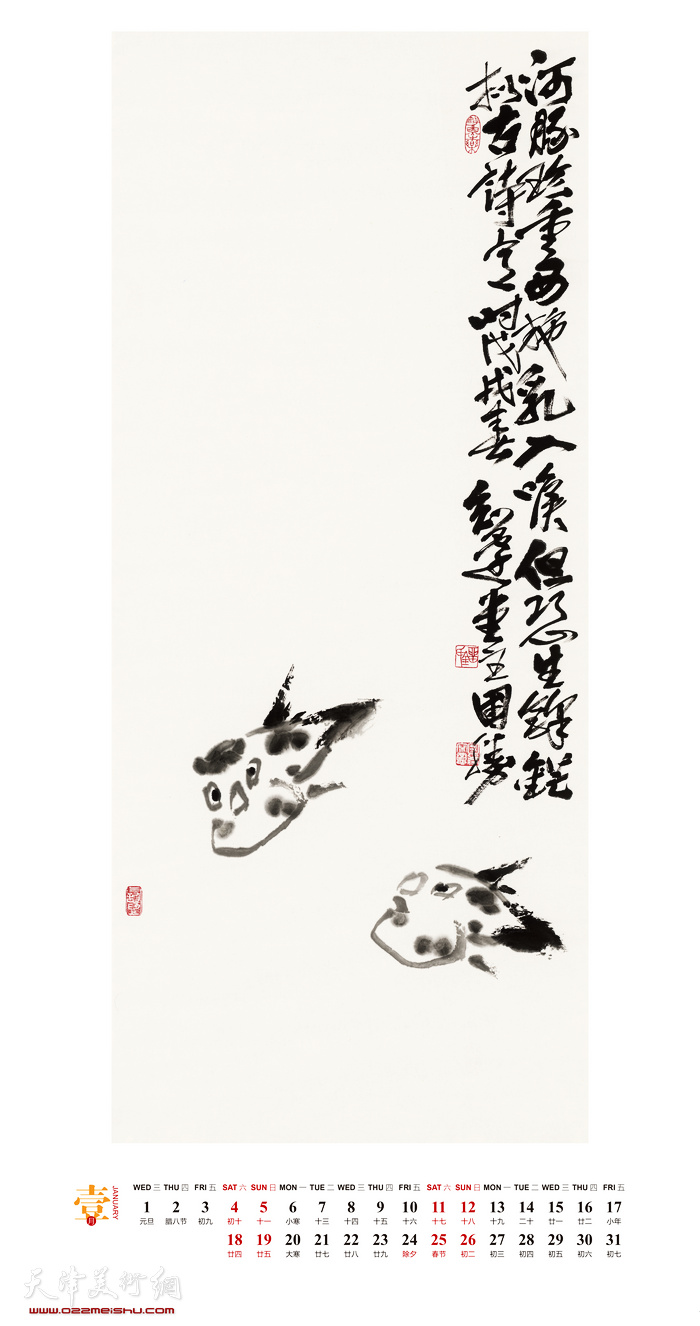 河豚珍重西施乳入喉但恐生
古詩 时戊戌春 堂主
壹月 JANUARY
WED 三 THU 四 FRI 五 SAT 六 SUN 日 MON 一 TUE 二 WED 三 THU 四 FRI 五 SAT 六 SUN 日 MON 一 TUE 二 WED 三 THU 四 FRI 五
1 2 3 4 5 6 7 8 9 10 11 12 13 14 15 16 17
元旦 腊八节 初九 初十 十一 小寒 十三 十四 十五 十六 十七 十八 十九 二十 廿一 廿二 小年
18 19 20 21 22 23 24 25 26 27 28 29 30 31
廿四 廿五 大寒 廿七 廿八 廿九 除夕 春节 初二 初三 初四 初五 初六 初七
天津美术網
www.022meishu.com